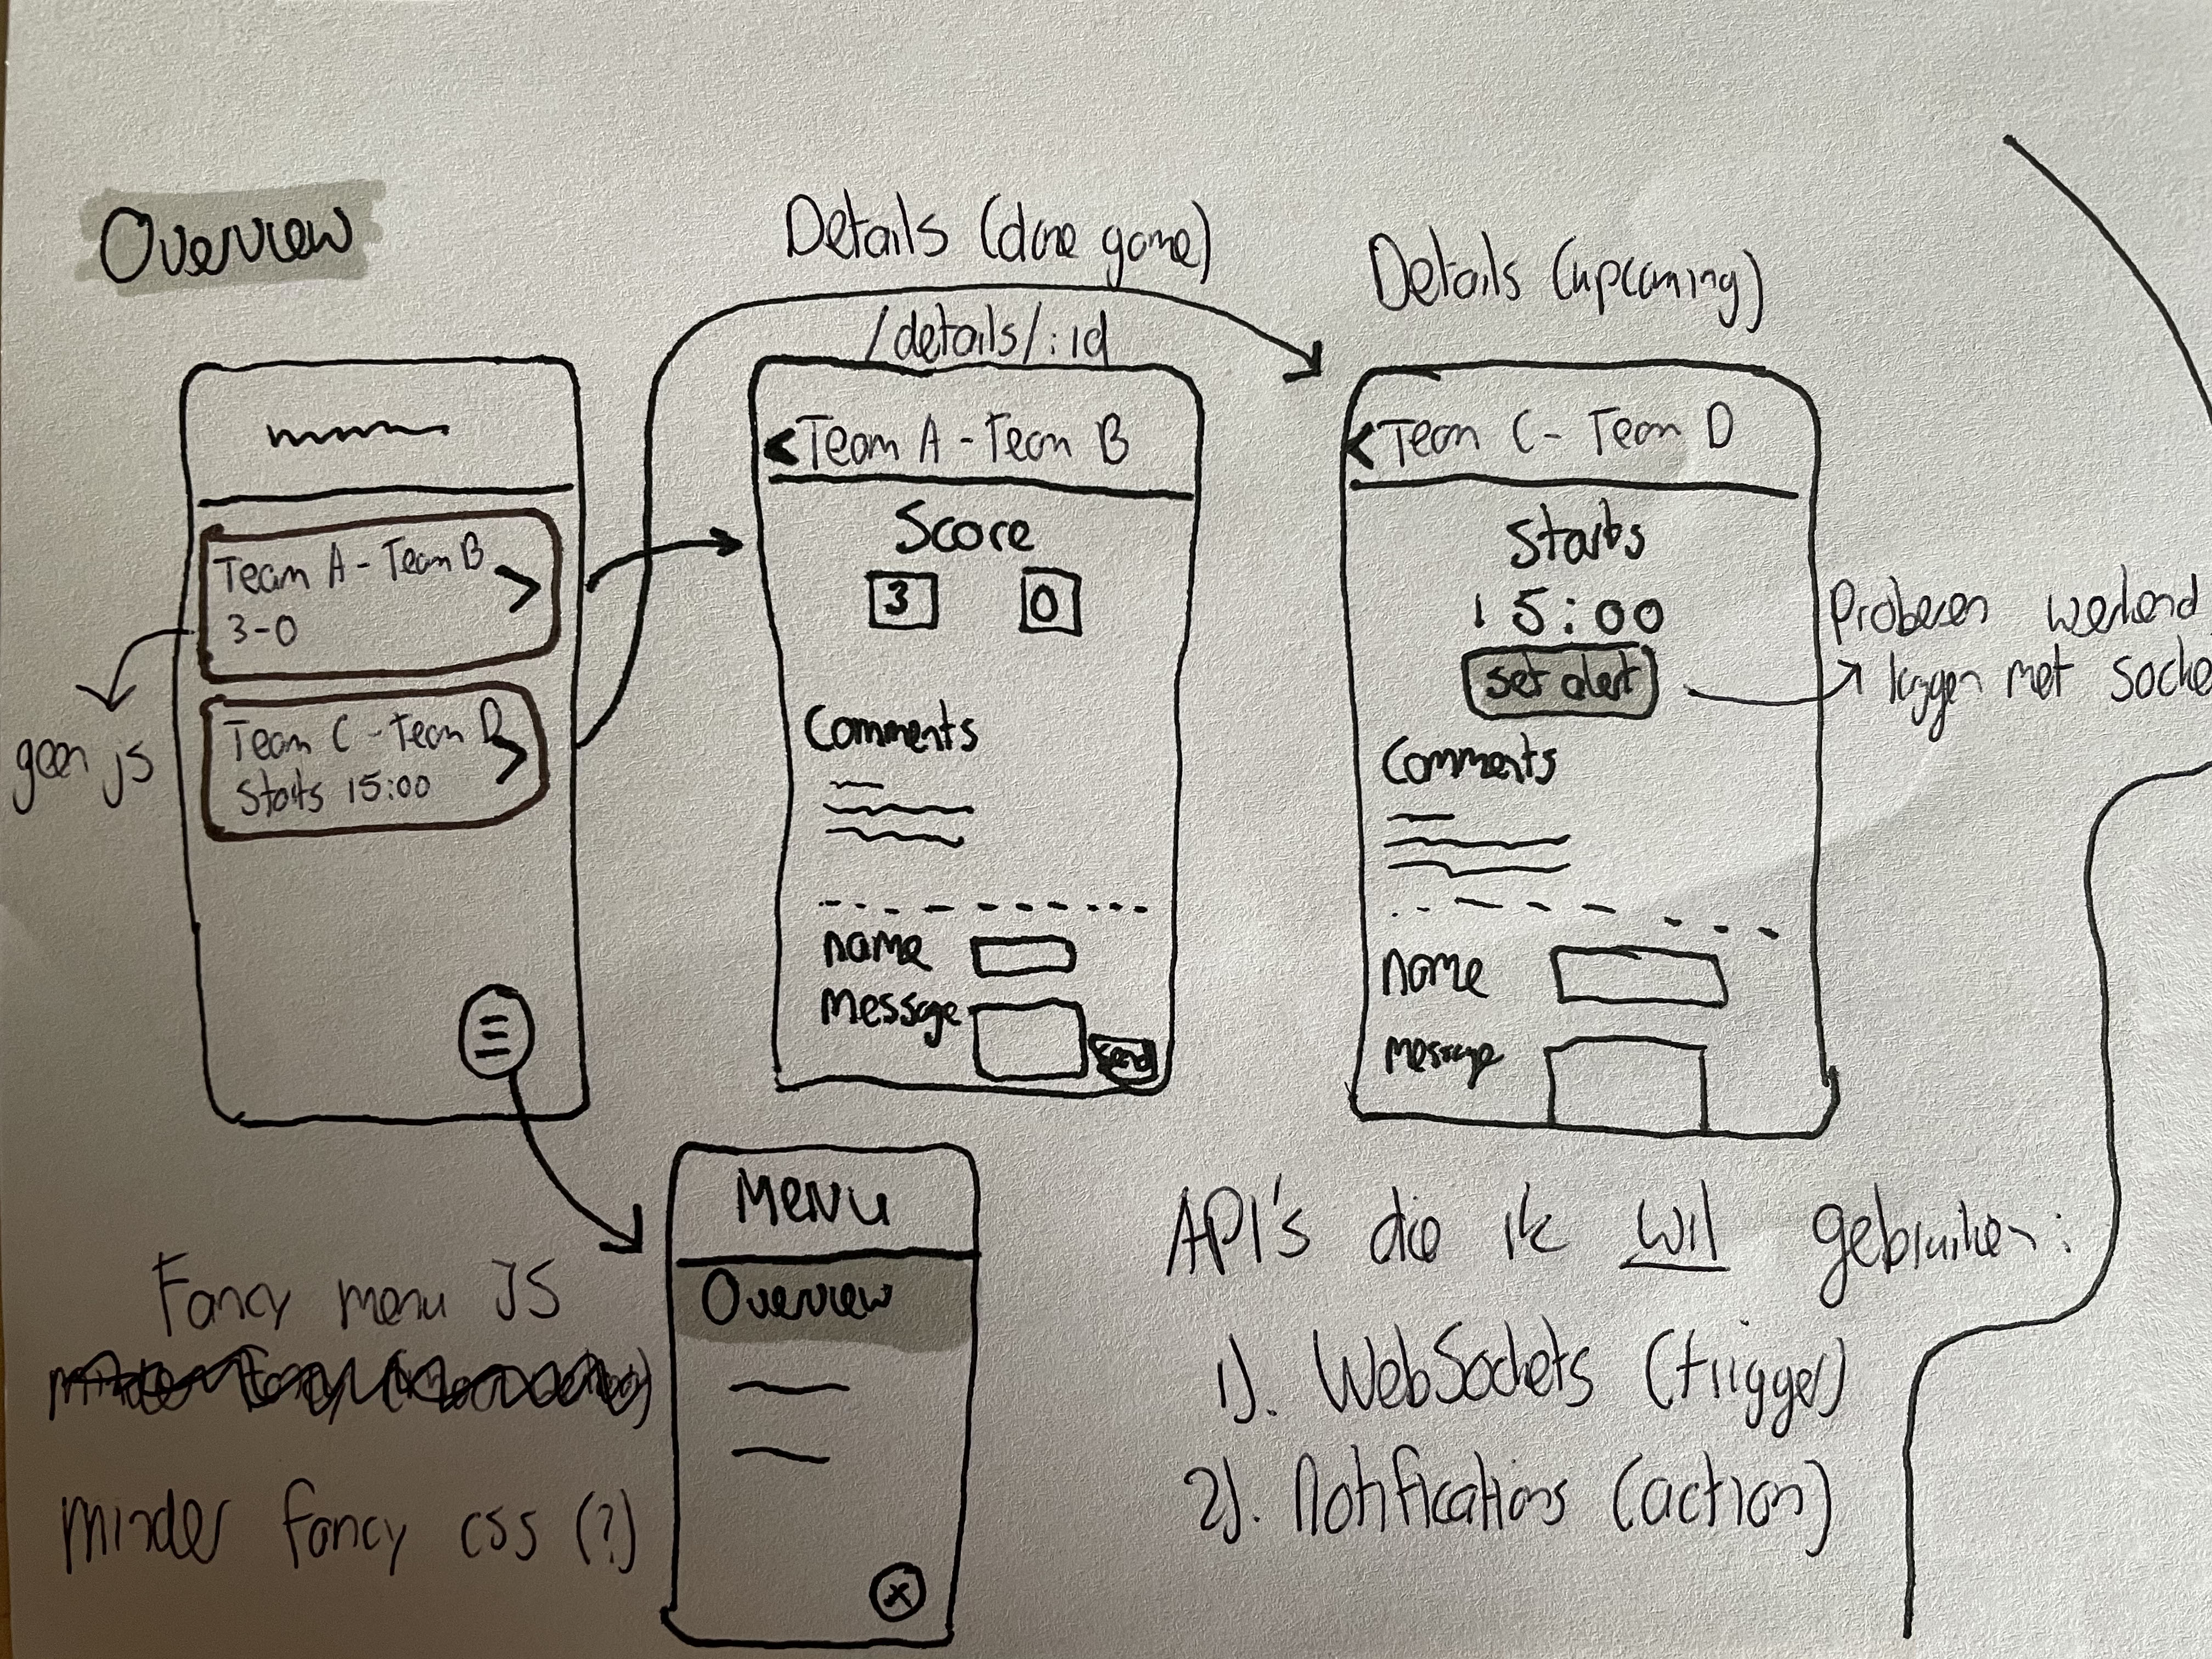 Overview
Team A - Team B
3-0
Team C - Team D
Starts 15:00
geen js
Details (done game)
/details/:id
Team A - Team B
Score
3 0
Comments
name
message
send
Details (upcoming)
Team C - Team D
Starts
15:00
set alert
Comments
name
message
Proberen werkend
krijgen met socke
Fancy menu JS
minder fancy css (?)
Menu
Overview
x
API's die ik wil gebruiken:
1). WebSockets (trigger)
2). Notifications (action)